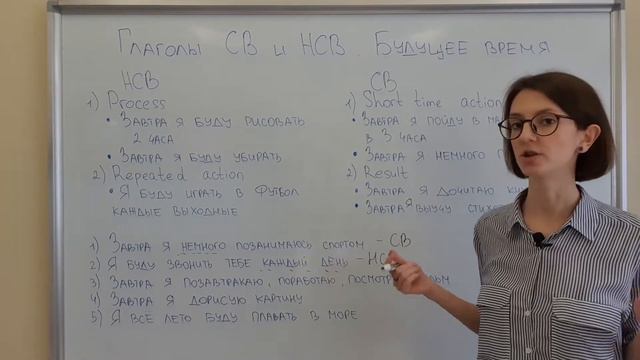 Глаголы СВ и НСВ. Будущее время
НСВ
1) Process
• Завтра я буду рисовать
2 часа
• Завтра я буду убирать
2) Repeated action
• Я буду играть в футбол
каждые выходные
СВ
1) Short time action
• Завтра я пойду в
в 3 часа
• Завтра я немного
2) Result
• Завтра я дочитаю
• Завтра я выучу
1) Завтра я немного позанимаюсь спортом – СВ
2) Я буду звонить тебе каждый день –
3) Завтра я позавтракаю, поработаю,
4) Завтра я дорисую картину
5) Я все лето буду плавать в море